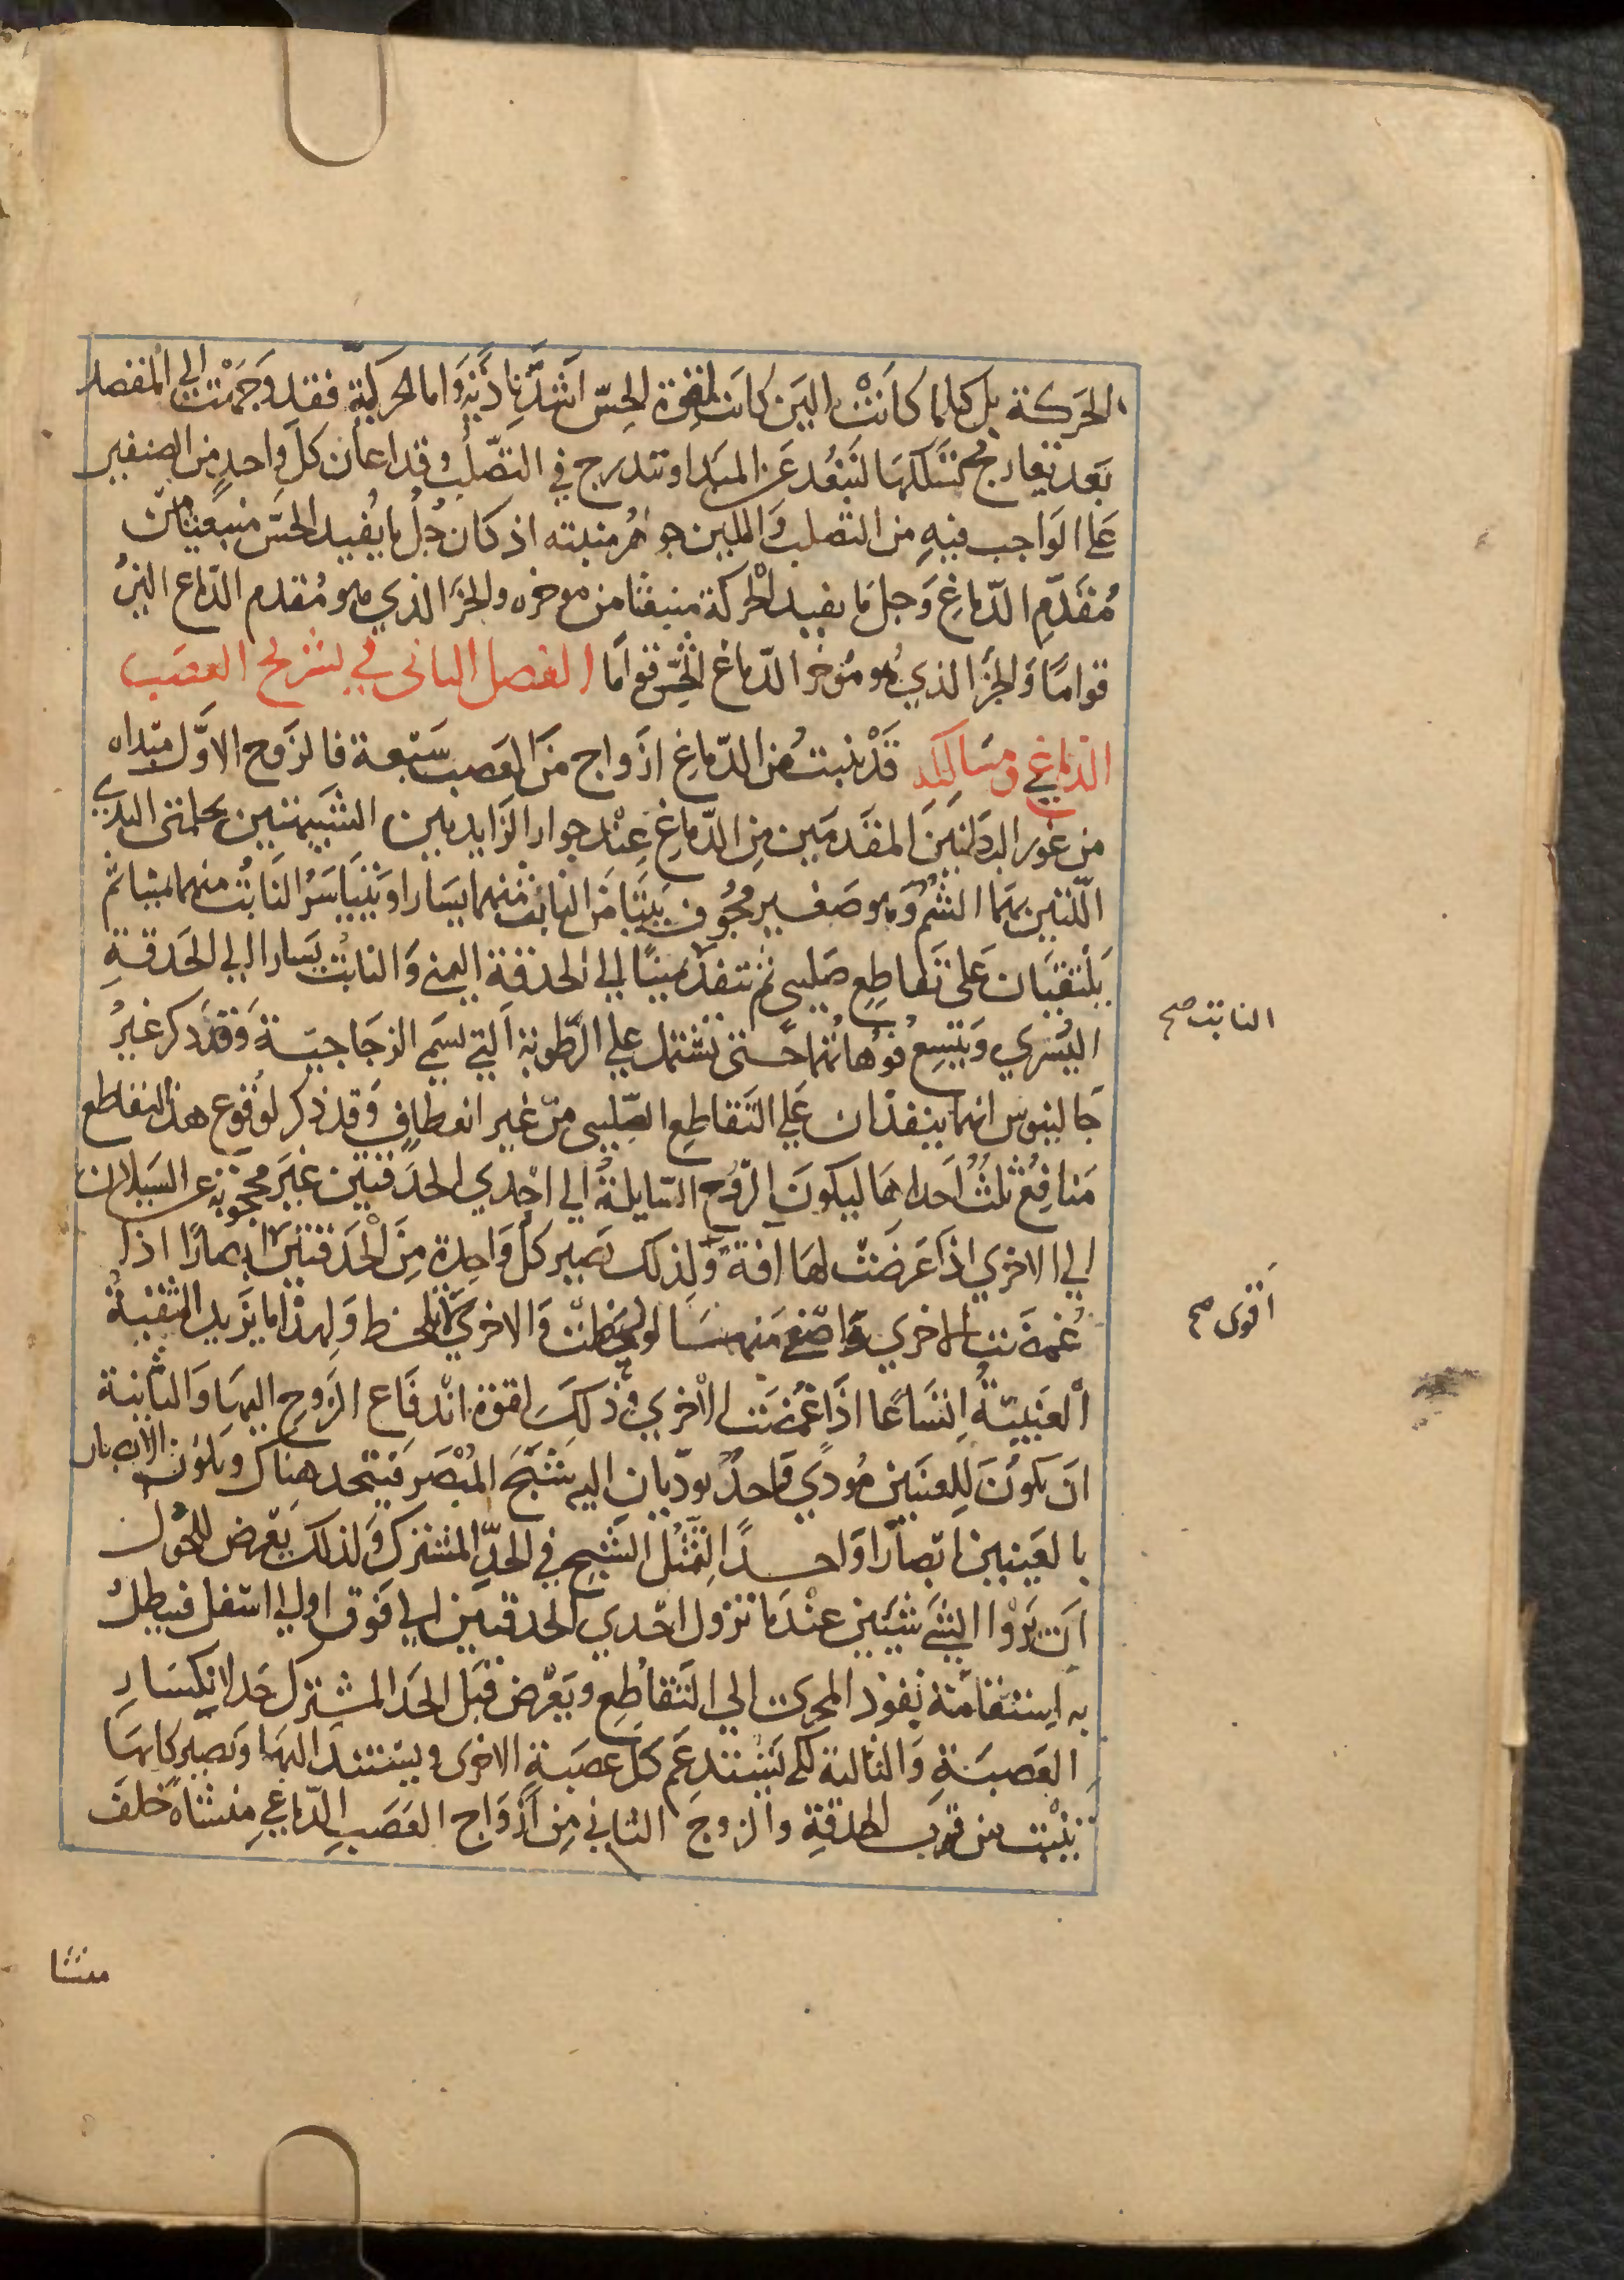 الحركة بل كلما كانت الين كانت لقوة الحس اشد تادية واما الحركية فقد وجهت الي المقصد
بعد تعاريج تسلكها لتبعد عن المبدا وتتدرج في التصلب وقد اعان كل واحد من الصنفين
علي الواجب فيه من التصلب والتليين جوهر منبته اذ كان جل ما يفيد الحس منبعثا من
مقدم الدماغ وجل ما يفيد الحركة منبعثا من موخره والجز الذي هو مقدم الدماغ الين
قواما والجز الذي هو موخر الدماغ اثخن قواما الفصل الثاني في تشريح العصب
الدماغي ومسالكه قد نبتت من الدماغ ازواج من العصب سبعة فالزوج الاول مبداه
من غور البطنين المقدمين من الدماغ عند جوار الزايدتين الشبيهتين بحلمتي الثدي
اللتين بهما الشم وهو صغير مجوف يتيامن النابت منهما يسارا ويتياسر النابت منهما يمينا ثم
يلتقيان علي تقاطع صليبي ثم تنفذ يمينا الي الحدقة اليمني والنابت يسارا الي الحدقة
النابت صح
اليسري ويتسع فوهاتهما حتي تشتمل علي الرطوبة التي تسمي الزجاجية وقد ذكر غير
جالينوس انهما ينفذان علي التقاطع الصليبي من غير انعطاف وقد ذكر لوقوع هذا التقاطع
منافع ثلث احداها ليكون الروح السايلة الي احدي الحدقتين غير محجوبة عن السيلان
الي الاخري اذا عرضت لها افة ولذلك تصير كل واحدة من الحدقتين ابصارا اذا
اقوي صح
غمضت الاخري واصفي منها لو لحظت والاخري لا تلحظ ولهذا ما يزيد الثقبة
العنبية اتساعا اذا غمضت الاخري وذلك لقوة اندفاع الروح اليها والثانية
ان يكون للعينين مودي واحد يوديان اليه شبح المبصر فيتحد هناك ويكون الابصار
بالعينين ابصارا واحدا لتمثل الشبح في الحد المشترك ولذلك يعرض للحول
ان يروا الشي شيئين عندما تزول احدي الحدقتين الي فوق او الي اسفل فيبطل
به استقامة نفوذ المجري الي التقاطع ويعرض قبل الحد المشترك حد لانكسار
العصبة والثالثة لكي تستدعم كل عصبة الاخري ويستند اليها وتصير كانها
تنبت من قرب الحدقة والزوج الثاني من ازواج العصب الدماغي منشاه خلف
منشا